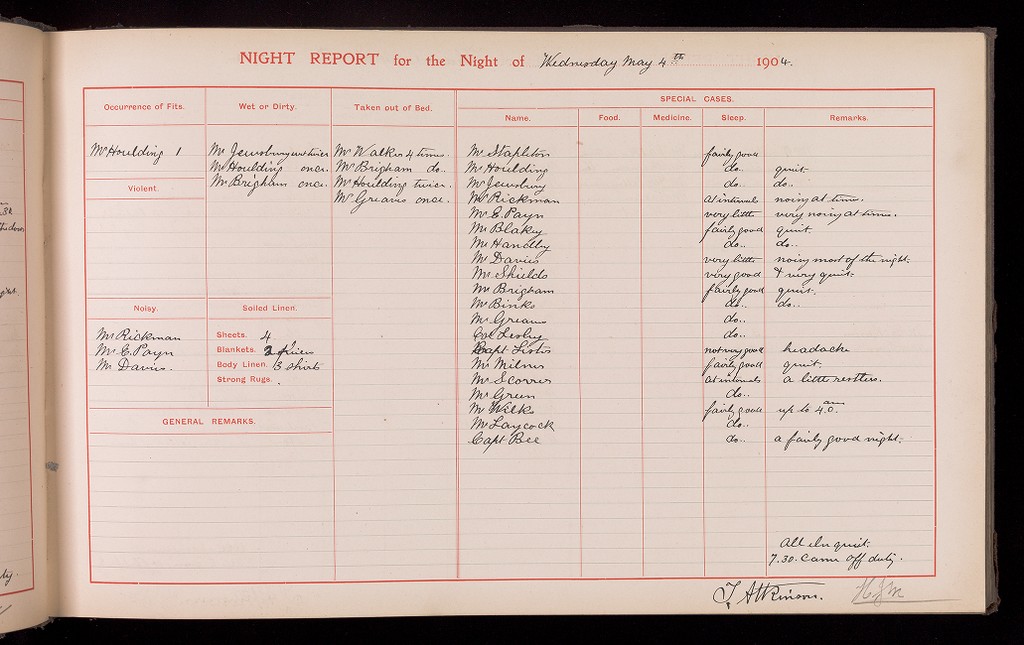 NIGHT REPORT for the Night of Wednesday May 4th 1904.
Occurrence of Fits.
Mr Houlding 1
Violent.
Noisy.
Mr Rickman
Mr E. Payn
Mr Davies.
Wet or Dirty.
Mr Jewsbury wet twice
Mr Houlding once.
Mr Brigham once.
Soiled Linen.
Sheets. 4
Blankets. 2
Body Linen. 3 shirts
Strong Rugs.
GENERAL REMARKS.
Taken out of Bed.
Mr Walker 4 times.
Mr Brigham do..
Mr Houlding twice.
Mr Greaves once.
SPECIAL CASES.
Name. Food. Medicine. Sleep. Remarks.
Mr Stapleton fairly good
Mr Houlding do.. quiet.
Mr Jewsbury do.. do..
Mr Rickman at intervals noisy at times.
Mr E. Payn very little very noisy at times.
Mr Blakey fairly good quiet.
Mr Handley do.. do..
Mr Davies very little noisy most of the night.
Mr Shields very good & very quiet.
Mr Brigham fairly good quiet.
Mr Binks do.. do..
Mr Greaves do..
Lesley do..
Capt Lister not very good headache
Mr Milnes fairly good quiet.
Mr Scorres at intervals a little restless.
Mr Green do..
Mr Wilks fairly good up to 4.0. am
Mr Laycock do..
Capt Bee do.. a fairly good night.
All else quiet.
7.30. Came off duty.
T. Atkinson. HJM